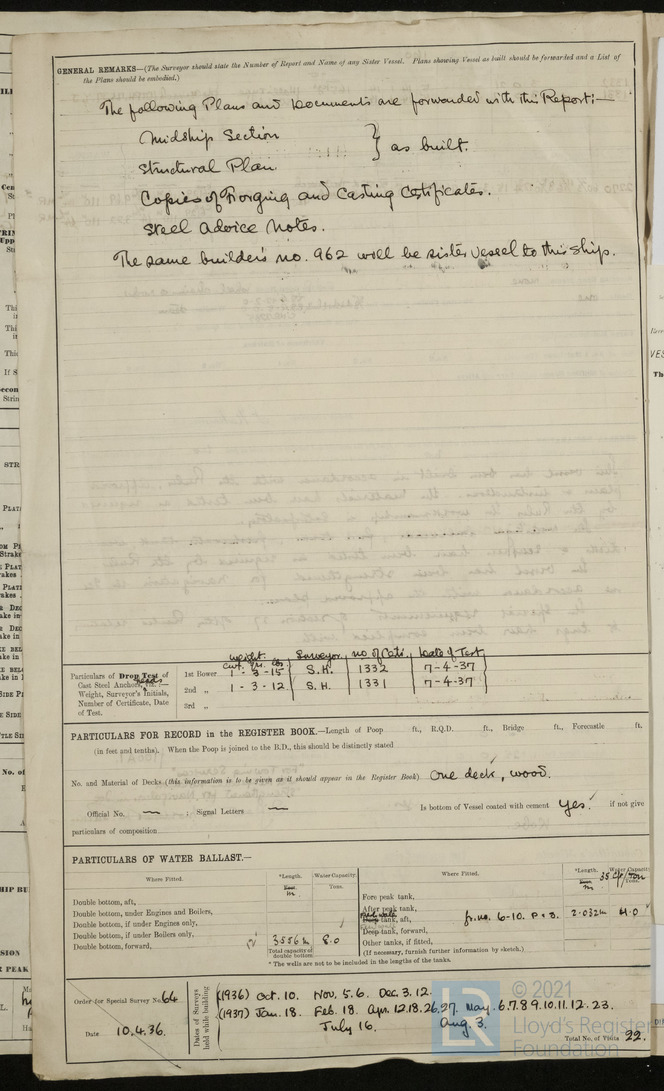 GENERAL REMARKS—(The Surveyor should state the Number of Report and Name of any Sister Vessel. Plans showing Vessel as built should be forwarded and a List of
the Plans should be embodied.)
The following Plans and Documents are forwarded with this Report:—
Midship Section
} as built.
Structural Plan
Copies of Forging and Casting Certificates.
Steel Advice Notes.
The same builder's no. 962 will be sister vessel to this ship.
Weight. Surveyor. No of Cert. Date of Test
cwt. qrs. lbs.
Particulars of Drop Test of
Cast Steel Anchor
Weight, Surveyor's Initials,
Number of Certificate, Date
of Test.
1st Bower 1 - 3 - 15 S.H. 1332 7-4-37
2nd „ 1 - 3 - 12 S.H. 1331 7-4-37
3rd „
PARTICULARS FOR RECORD in the REGISTER BOOK.—Length of Poop ft., R.Q.D. ft., Bridge ft., Forecastle ft.
(in feet and tenths). When the Poop is joined to the B.D., this should be distinctly stated
No. and Material of Decks (this information is to be given as it should appear in the Register Book) One deck, wood.
Official No. — ; Signal Letters — Is bottom of Vessel coated with cement Yes. if not give
particulars of composition
PARTICULARS OF WATER BALLAST.—
Where Fitted. *Length. Water Capacity. Where Fitted. *Length. Water Capacity.
m Tons. m 35 Cf/Ton
Double bottom, aft,
Double bottom, under Engines and Boilers,
Double bottom, if under Engines only,
Double bottom, if under Boilers only,
Double bottom, forward, 3556 m 8.0
Total capacity of double bottom
Fore peak tank,
After peak tank,
tank, aft, fr. no. 6-10. P & S. 2.032 m 4.0
Deep tank, forward,
Other tanks, if fitted,
(If necessary, furnish further information by sketch.)
* The wells are not to be included in the lengths of the tanks.
Order for Special Survey No. 64
Date 10.4.36.
Dates of Surveys held while building
(1936) Oct. 10. Nov. 5.6. Dec. 3.12.
(1937) Jan. 18. Feb. 18. Apr. 12.18.26.27. May. 6.7.8.9.10.11.12.23.
July 16. Aug. 3.
Total No. of Visits 22.
© 2021
Lloyd's Register
Foundation